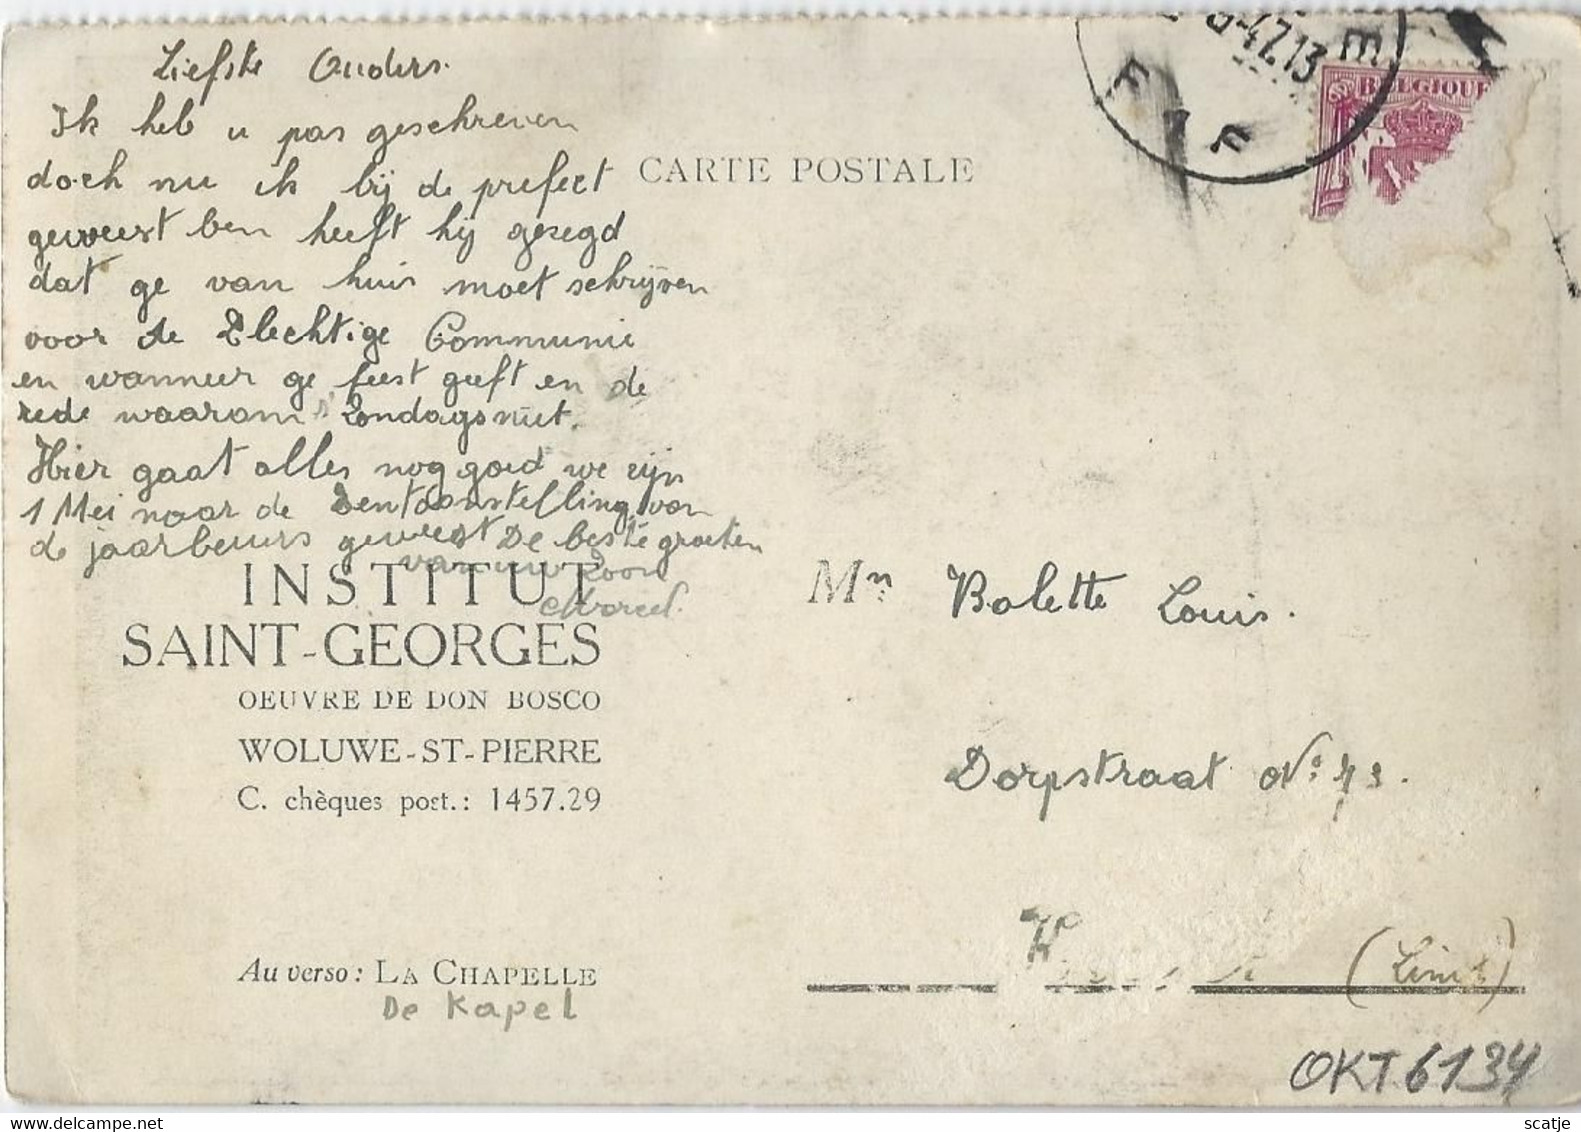 Liefste Ouders.
Ik heb u pas geschreven
doch nu ik bij de prefect
geweest ben heeft hij gezegd
dat ge van huis moet schrijven
voor de Plechtige Communie
en wanneer ge feest geeft en de
rede waarom 's Zondags niet.
Hier gaat alles nog goed we zijn
1 Mei naar de tentoonstelling van
de jaarbeurs geweest De beste groeten
van uw Zoon
Marcel.
CARTE POSTALE
BELGIQUE
INSTITUT
SAINT-GEORGES
OEUVRE DE DON BOSCO
WOLUWE-ST-PIERRE
C. chèques post.: 1457.29
Au verso: LA CHAPELLE
De Kapel
Mr Bolette Louis.
Dorpstraat No 43.
(Limb)
OKT 6134
scatje